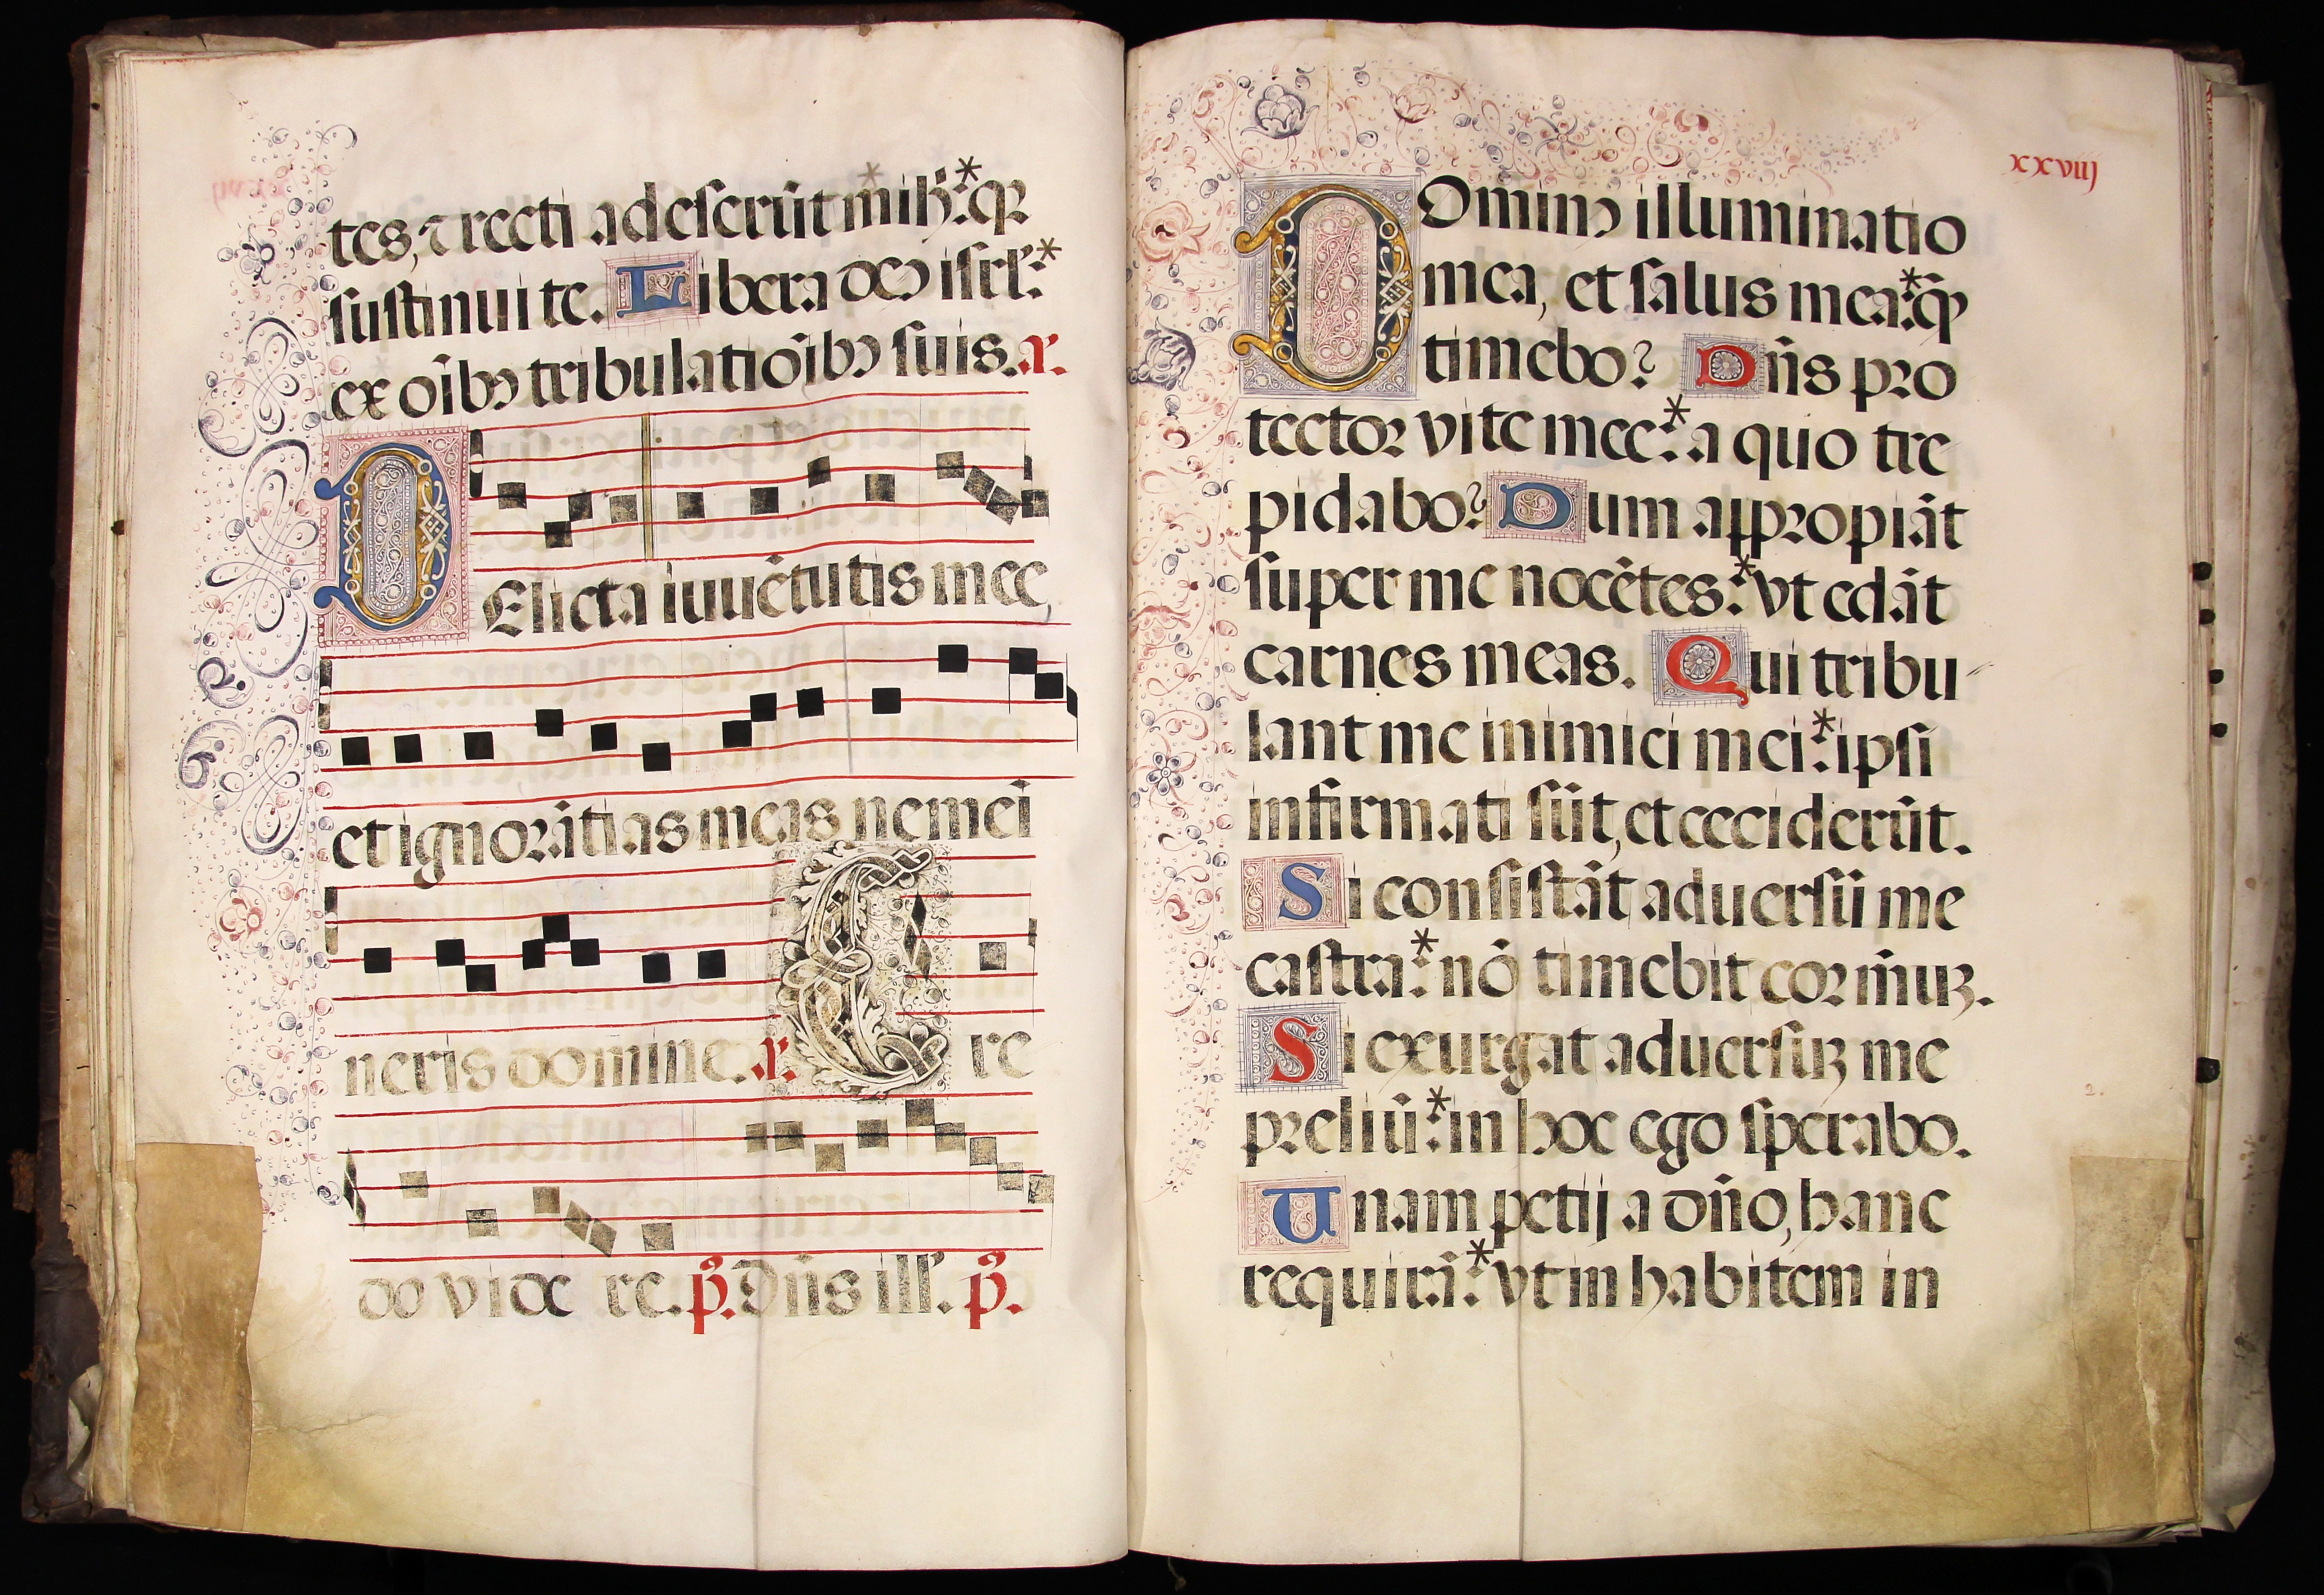 tes, ⁊ recti adeserūt mihi:* qr
sustinui te. Libera deus isrl':*
ex oībus tribulatiōibus suis. a.
DElicta iuuētutis mee,
et ignorātias meas ne memi
neris domine. a. Cre
do vide re. ps. Dñs ill'. ps.
xxviij
DOminus illuminatio
mea, et salus mea:* quē
timebo? Dñs pro
tector vite mee:* a quo tre
pidabo? Dum appropiāt
super me nocētes:* vt edāt
carnes meas. Qui tribu
lant me inimici mei:* ipsi
infirmati sūt, et ceciderūt.
Si consistāt aduersū me
castra:* nō timebit cor meuz.
Si exurgat aduersuz me
preliū:* in hoc ego sperabo.
Unam petij a dño, hanc
requirā:* vt inhabitem in
2.